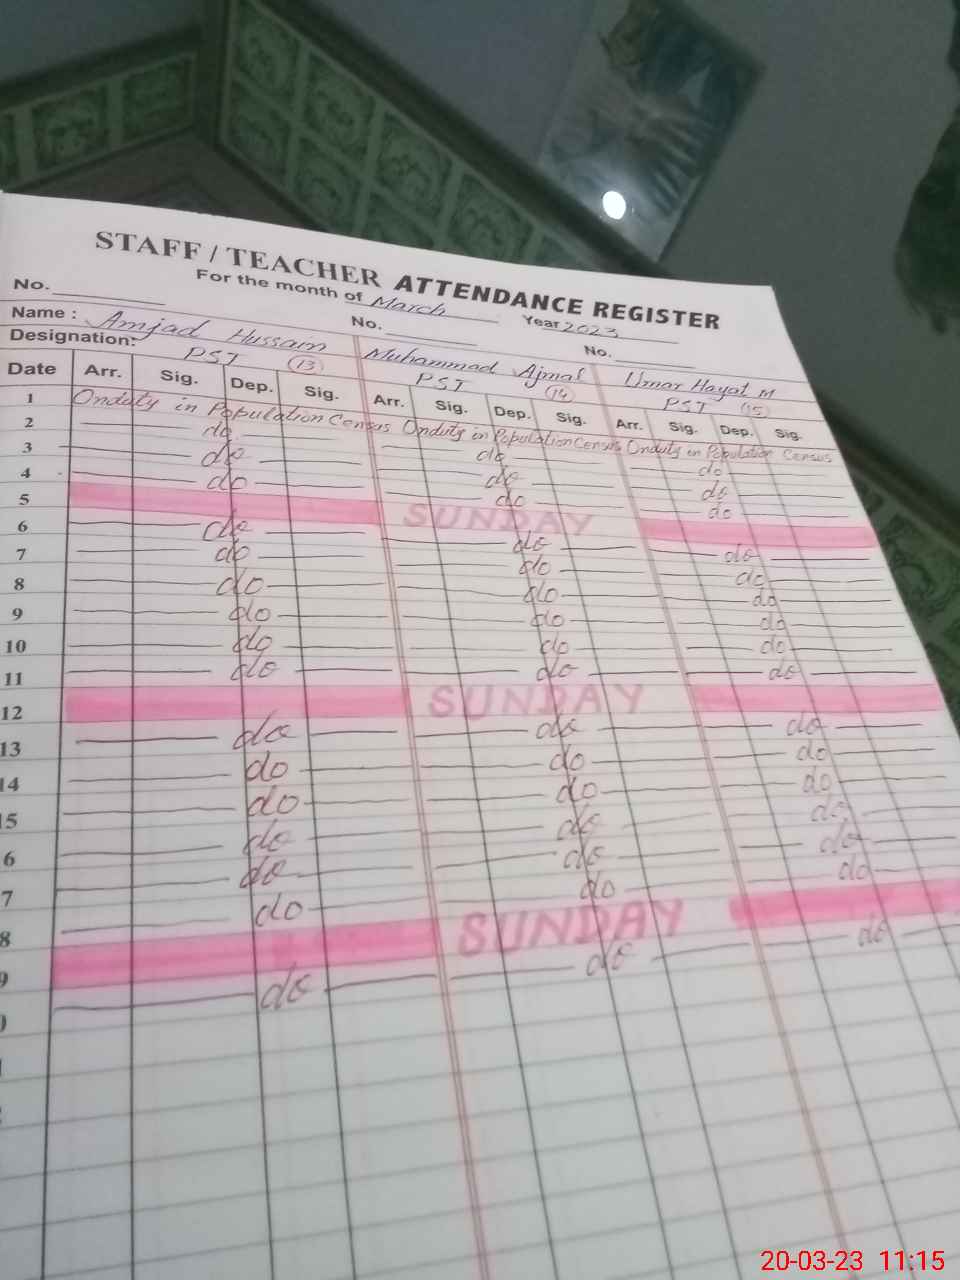 STAFF / TEACHER ATTENDANCE REGISTER
For the month of March Year 2023
No. No. No.
Name : Amjad Hussain Muhammad Ajmal Umar Hayat M
Designation: PST (13) PST (14) PST (15)
Date Arr. Sig. Dep. Sig. Arr. Sig. Dep. Sig. Arr. Sig. Dep. Sig.
1 Onduty in Population Census Onduty in Population Census Onduty in Population Census
2 do do do
3 do do do
4 do do do
5 SUNDAY
6 do do do
7 do do do
8 do do do
9 do do do
10 do do do
11 do do do
12 SUNDAY
13 do do do
14 do do do
15 do do do
6 do do do
7 do do do
8 do do do
9 SUNDAY
0 do do do
20-03-23 11:15